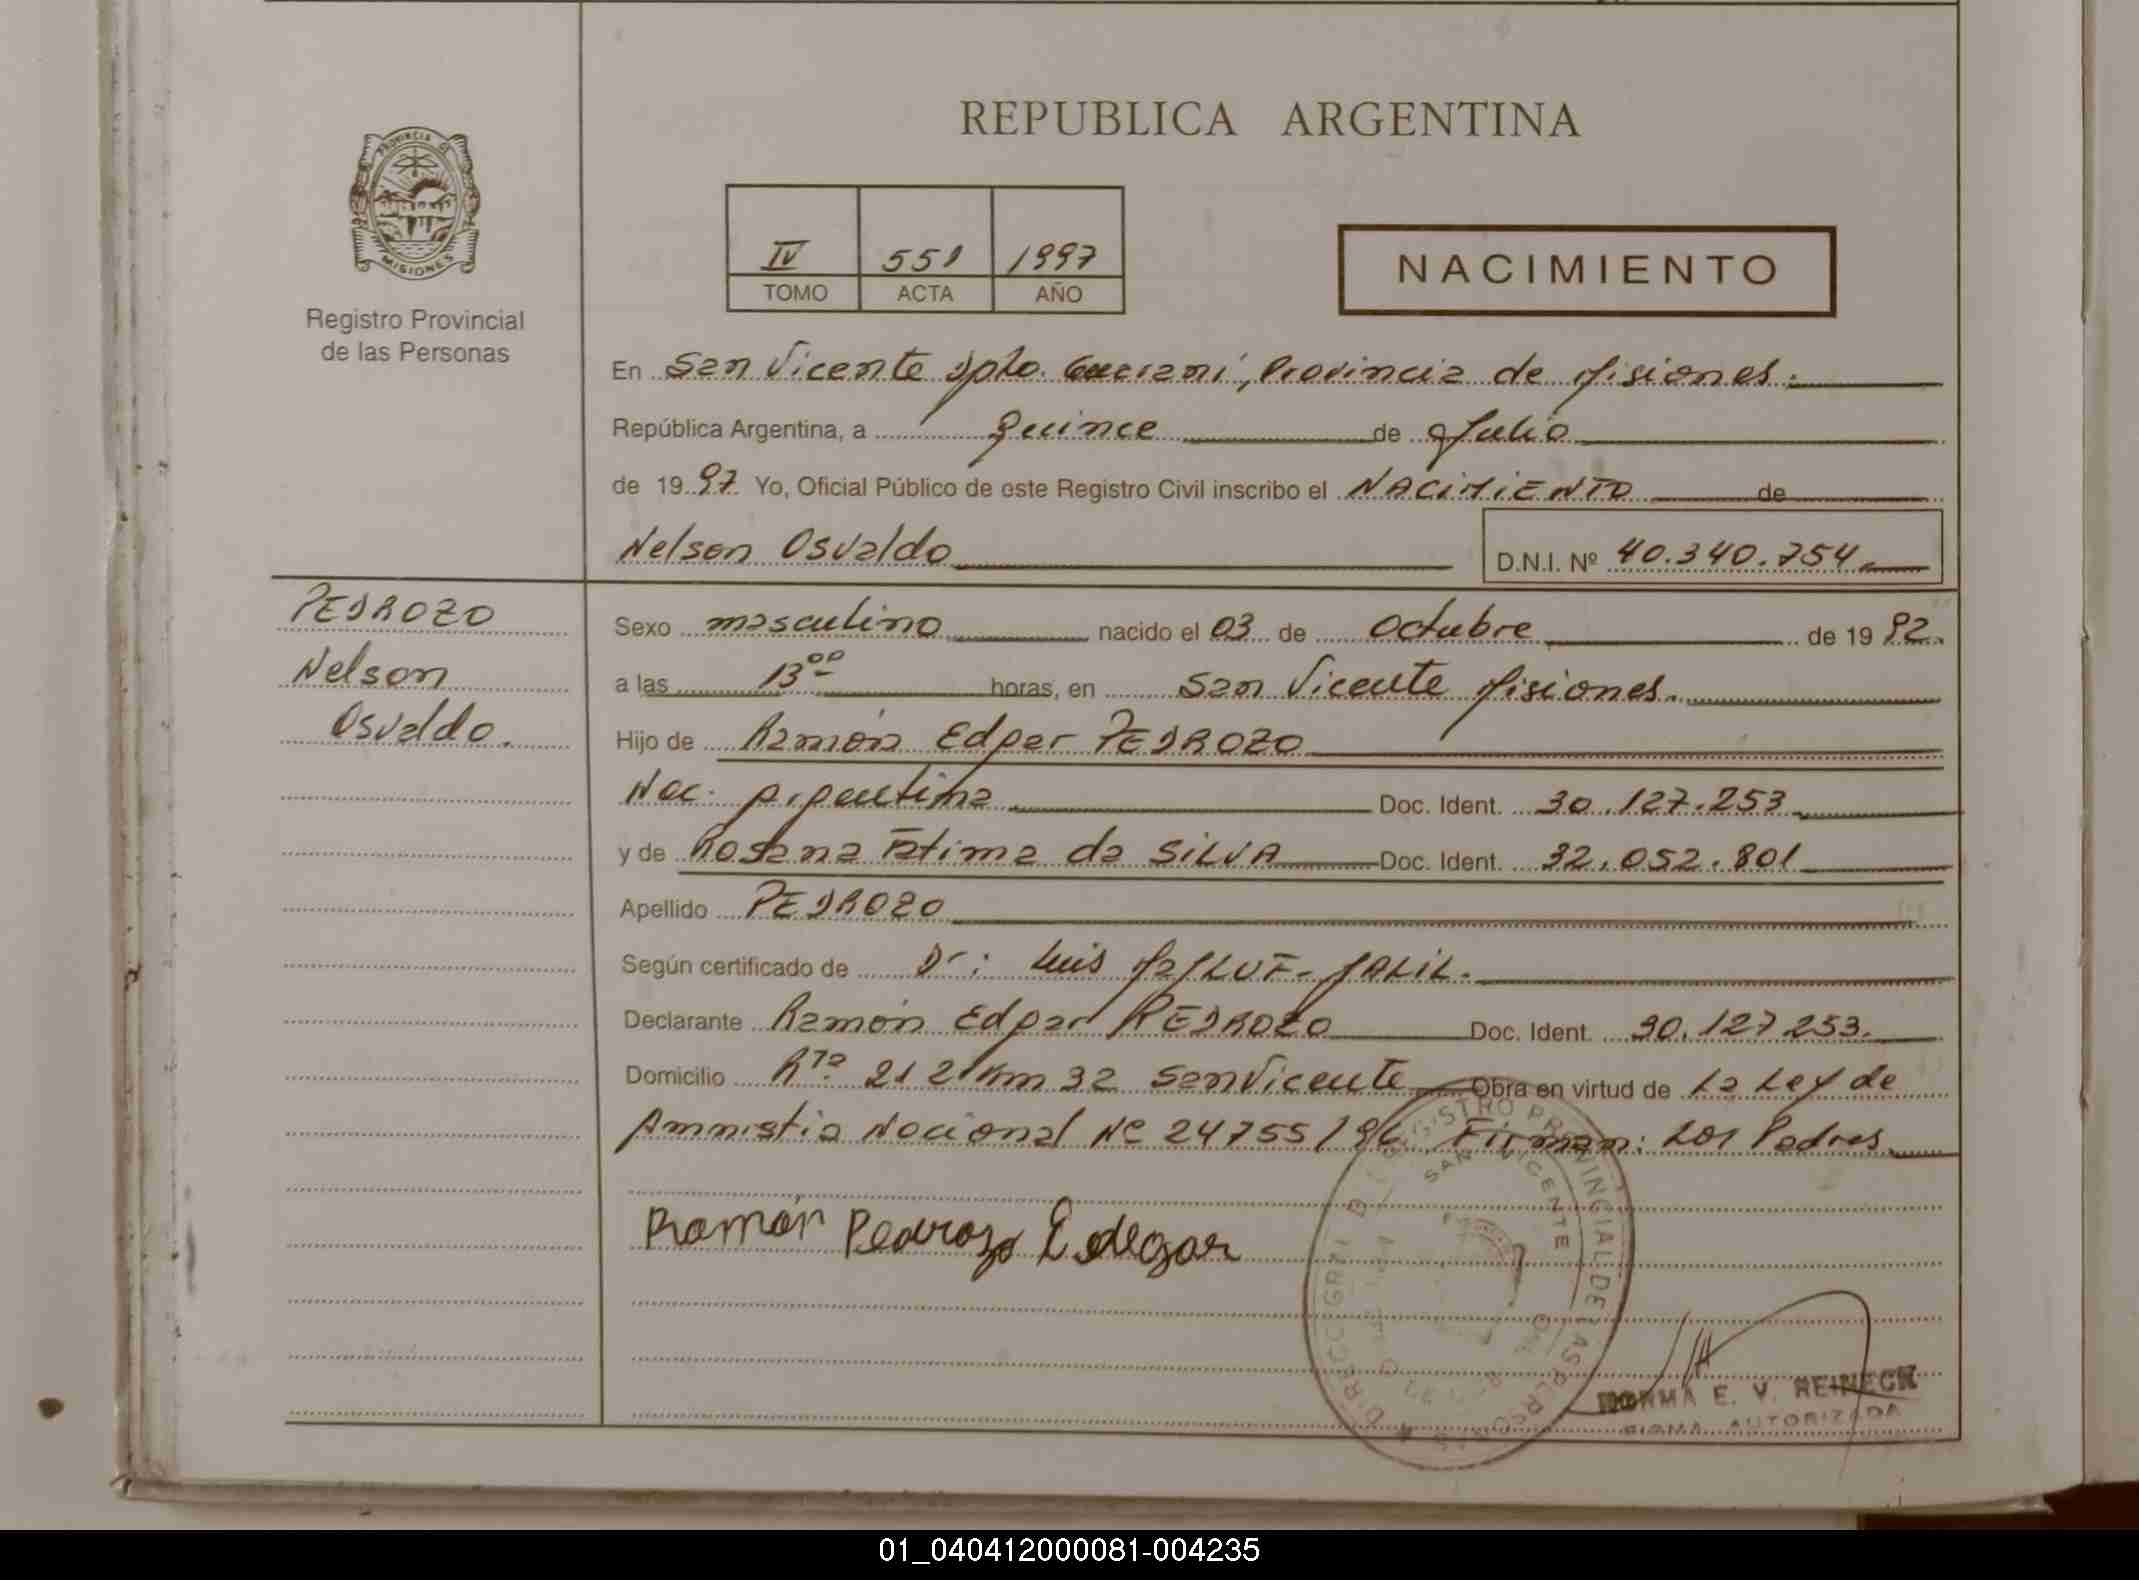 REPUBLICA ARGENTINA
PROVINCIA DE
MISIONES
Registro Provincial
de las Personas
IV 551 1997
TOMO ACTA AÑO
NACIMIENTO
En San Vicente Dpto. Guaraní, Provincia de Misiones.
República Argentina, a Quince de Julio
de 1997 Yo, Oficial Público de este Registro Civil inscribo el NACIMIENTO de
Nelson Osvaldo D.N.I. Nº 40.340.754
PEDROZO
Nelson
Osvaldo.
Sexo masculino nacido el 03 de Octubre de 1992.
a las 13⁰⁰ horas, en San Vicente Misiones.
Hijo de Ramón Edgar PEDROZO
Nac. Argentina Doc. Ident. 30.127.253
y de Rosana Fátima da SILVA Doc. Ident. 32.052.801
Apellido PEDROZO
Según certificado de Dr: Luis JALIL.
Declarante Ramón Edgar PEDROZO Doc. Ident. 30.127.253.
Domicilio Rta 212 Km 32 San Vicente Obra en virtud de La Ley de
Amnistia Nacional Nº 24755/96 Firman: Los Padres
Ramón Pedrozo Edegar
REGISTRO PROVINCIAL DE LAS PERSONAS
SAN VICENTE
NORMA E. V. REINECK
FIRMA AUTORIZADA
01_040412000081-004235